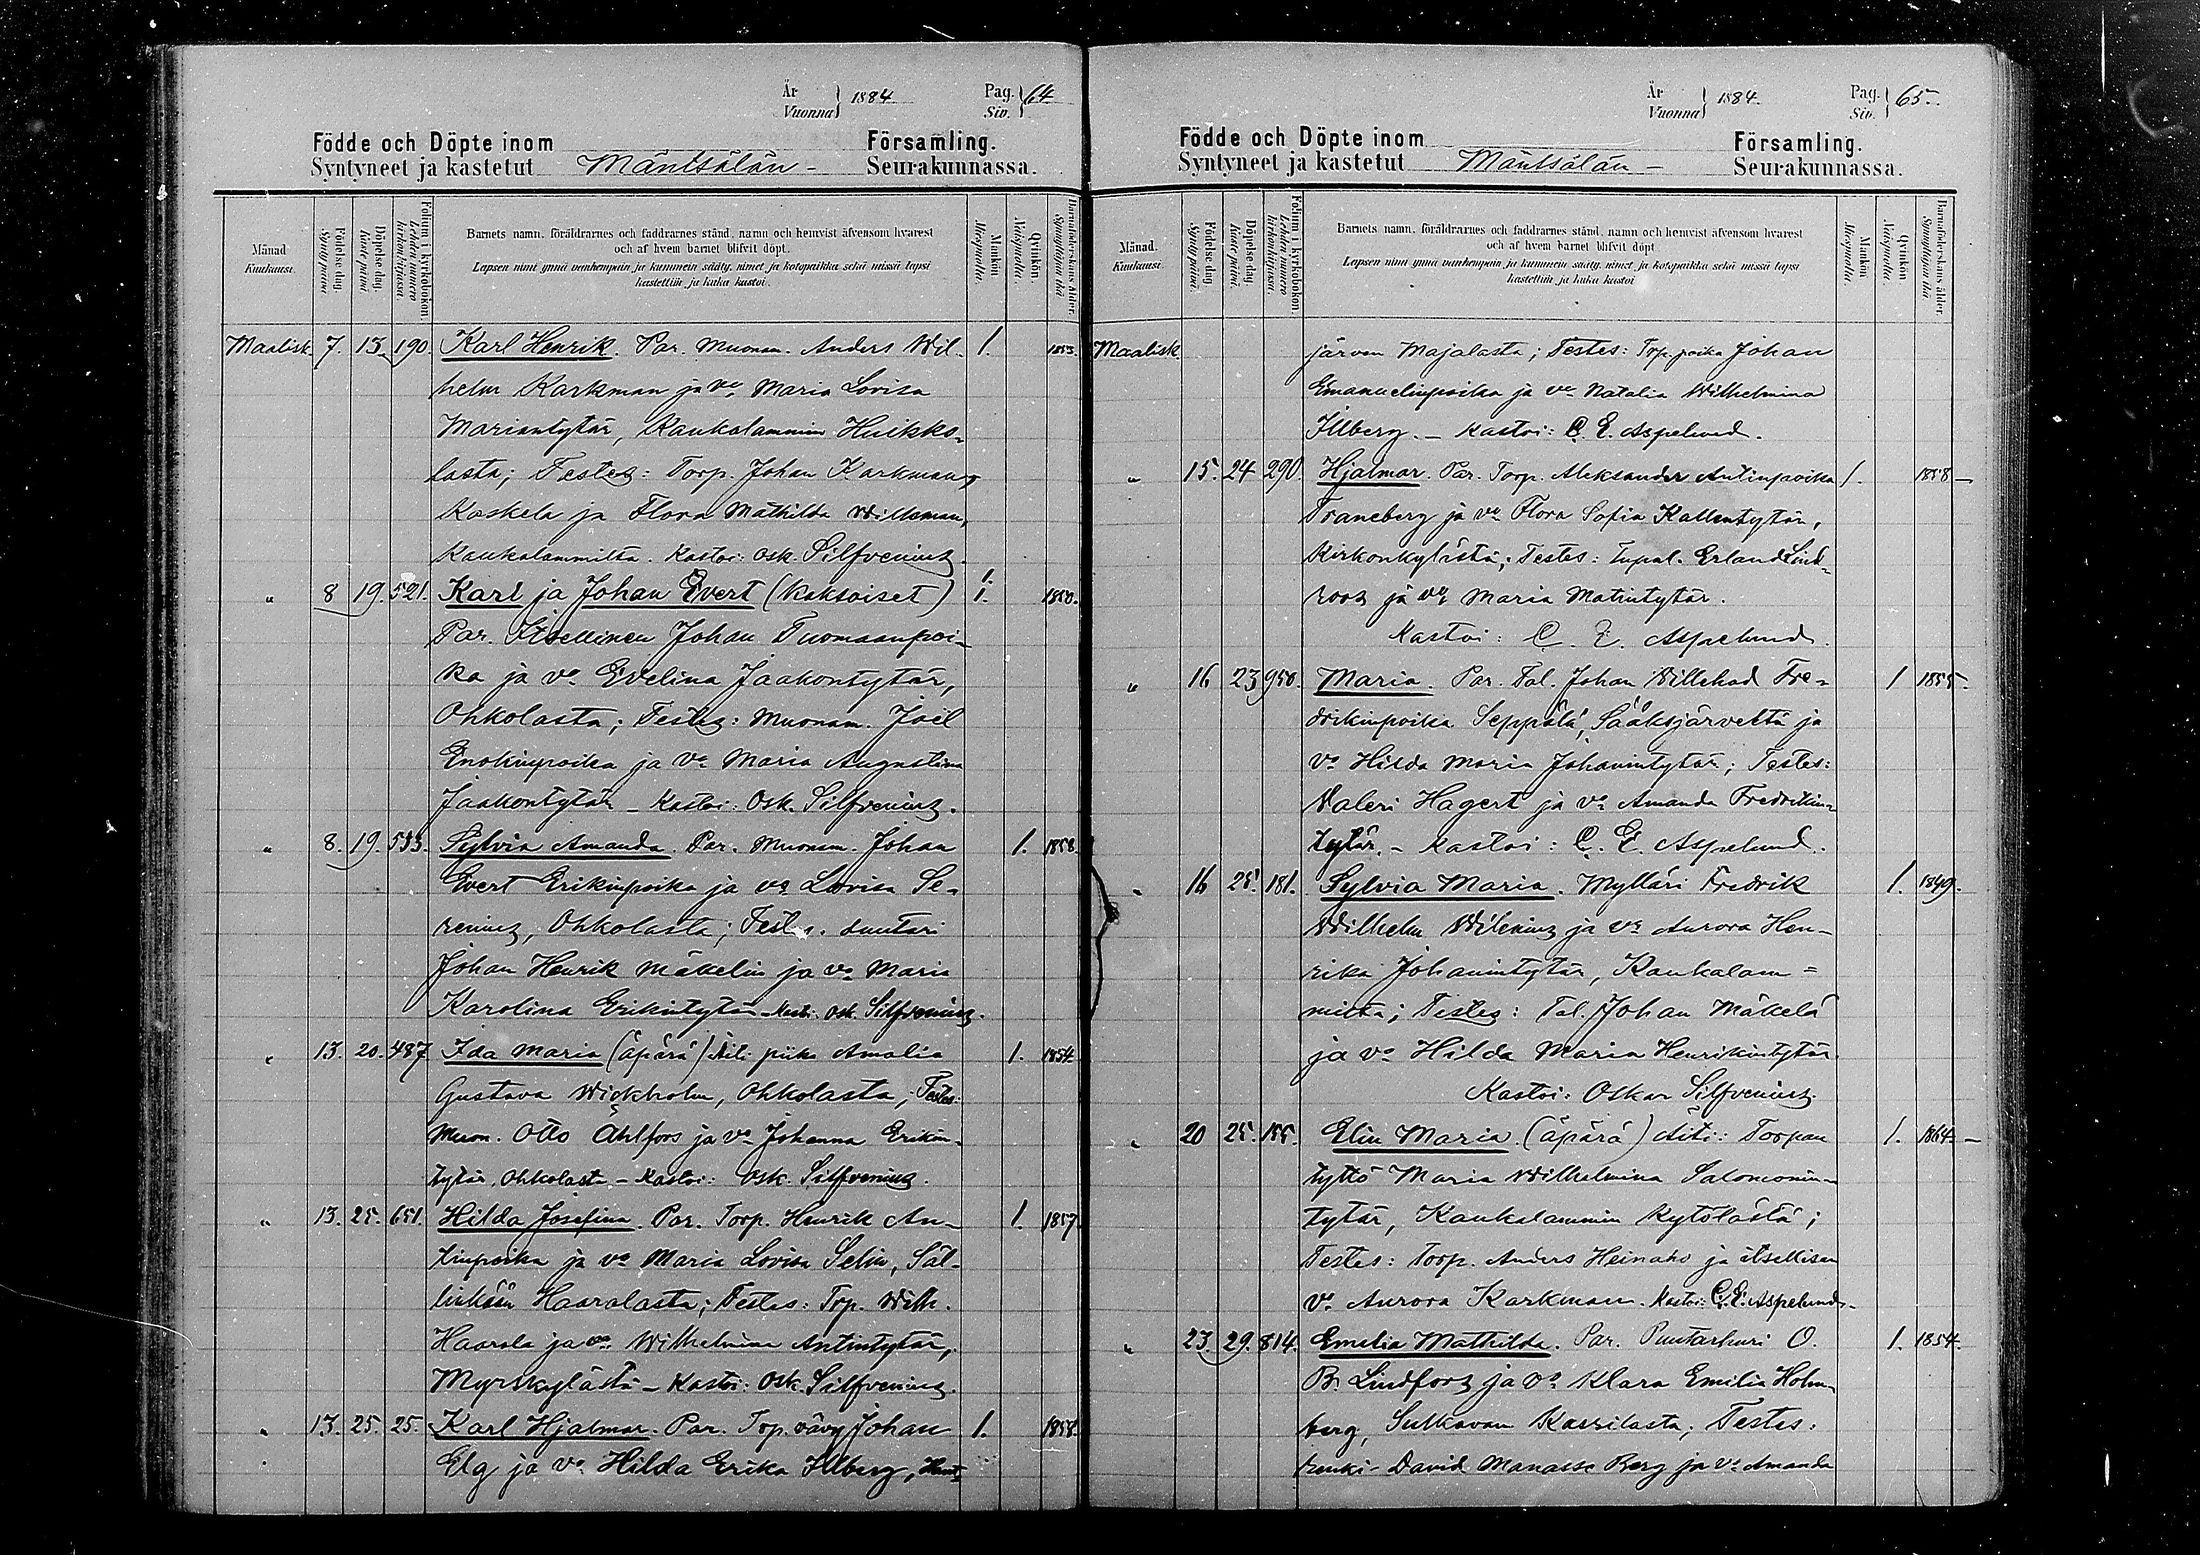 År
Vuonna } 1884. Pag.
Siv. } 64
Födde och Döpte inom Församling.
Syntyneet ja kastetut Mäntsälän - Seurakunnassa.
Månad
Kuukausi.
Födelse dag.
Syntymäpäivä
Döpelse dag.
Kastepäivä
Folium i kyrkobokon
Lehden numero kirkonkirjassa.
Barnets namn, föräldrarnes och faddrarnes stånd, namn och hemvist äfvensom hvarest
och af hvem barnet blifvit döpt.
Lapsen nimi ynnä vanhempain ja kummein sääty, nimet ja kotopaikka sekä missä lapsi
kastettiin ja kuka kastoi.
Mankön.
Miespuolta.
Qvinkön.
Vaimopuolta.
Barnaföderskans ålder.
Synnyttäjän ikä
Maalisk. 7. 13. 190. Karl Henrik. Par. Muonam. Anders Wil- 1. 1853.
helm Karkman ja vo Maria Lovisa
Mariantytär, Kaukalammin Huikko-
lasta; Testes: Torp. Johan Karkman,
Koskela ja Flora Mathilda Willman,
Kaukalammilta. Kastoi: Osk. Silfvenius.
" 8 19. 521. Karl ja Johan Evert (kaksoiset) 1. 1. 1850.
Par. Itsellinen Johan Tuomaanpoi-
ka ja vo Evelina Jaakontytär,
Ohkolasta; Testes: Muonam. Joel
Enokinpoika ja vo Maria Augustina
Jaakontytär - Kastoi: Osk. Silfvenius.
" 8. 19. 533. Sylvia Amanda. Par. Muonam. Johan 1. 1858.
Evert Erikinpoika ja vo Lovisa Se-
renius, Ohkolasta; Testes. Suutari
Johan Henrik Mäkelin ja vo Maria
Karolina Erikintytär - Kast: Osk. Silfvenius.
" 13. 20. 487. Ida Maria (äpärä) Äiti piika Amalia 1. 1854.
Gustava Wickholm, Ohkolasta; Testes:
Muon. Otto Ahlfors ja vo Johanna Erikin-
tytär, Ohkolasta - Kastoi: Osk. Silfvenius.
" 13. 25. 651. Hilda Josefina. Par. Torp. Henrik An- 1. 1857.
tinpoika ja vo Maria Lovisa Selin, Säl-
linkään Haaralasta; Testes: Trp. Wilh.
Haarala ja vo Wilhelmina Antintytär,
Myrskylästä - Kastoi: Osk. Silfvenius.
" 13. 25. 25. Karl Hjalmar. Par. Trp. vävy Johan 1. 1858.
Elg ja vo Hilda Erika Illberg, Hunt-
År
Vuonna } 1884. Pag.
Siv. } 65.
Födde och Döpte inom Församling.
Syntyneet ja kastetut Mäntsälän - Seurakunnassa.
Månad.
Kuukausi.
Födelse dag.
Syntymäpäivä.
Döpelse dag.
Kastepäivä.
Folium i kyrkobokon
Lehden numero kirkonkirjassa.
Barnets namn, föräldrarnes och faddrarnes stånd, namn och hemvist äfvensom hvarest
och af hvem barnet blifvit döpt.
Lapsen nimi ynnä vanhempain ja kummein sääty, nimet ja kotopaikka sekä missä lapsi
kastettiin ja kuka kastoi
Mankön.
Miespuolta.
Qvinkön.
Vaimopuolta.
Barnaföderskans ålder.
Synnyttäjän ikä
Maalisk järven Majalasta; Testes: Trp. poika Johan
Emanuelinpoika ja vo Natalia Wilhelmina
Illberg. - Kastoi: C. E. Aspelund.
" 15. 24 290. Hjalmar. Par. Torp. Aleksander Antinpoika 1. 1858 -
Traneberg ja vo Flora Sofia Kallentytär,
Kirkonkylästä; Testes: Tupal. Erland Lind-
roos ja vo Maria Matintytär.
Kastoi: C. E. Aspelund.
" 16 23 950. Maria. Par. Tal. Johan Willehad Fre- 1 1855.
drikinpoika Seppälä, Sääksjärveltä ja
vo Hilda Maria Johanintytär; Testes:
Valeri Hagert ja vo Amanda Fredrikin-
tytär. - Kastoi: C. E. Aspelund.
" 16 25. 181. Sylvia Maria. Mylläri Fredrik 1. 1849.
Wilhelm Wilenius ja vo Aurora Hen-
rika Johanintytär, Kaukalam=
milta; Testes: Tal. Johan Mäkelä
ja vo Hilda Maria Henrikintytär.
Kastoi: Oskar Silfvenius.
" 20 25. 155. Elin Maria (äpärä) Äiti: Torpan 1. 1864. -
tyttö Maria Wilhelmina Salomonin-
tytär, Kaukalammin Kytölästä;
Testes: Torp. Anders Heinaho ja itsellisen
vo Aurora Karkman. Kastoi: C. E. Aspelund.
" 23. 29. 814. Emilia Mathilda. Par. Puutarhuri O. 1. 1854.
B. Lindfors ja vo Klara Emilia Holm-
berg, Sulkavan Kassilasta; Testes:
renki - David Manasse Berg ja vo Amanda